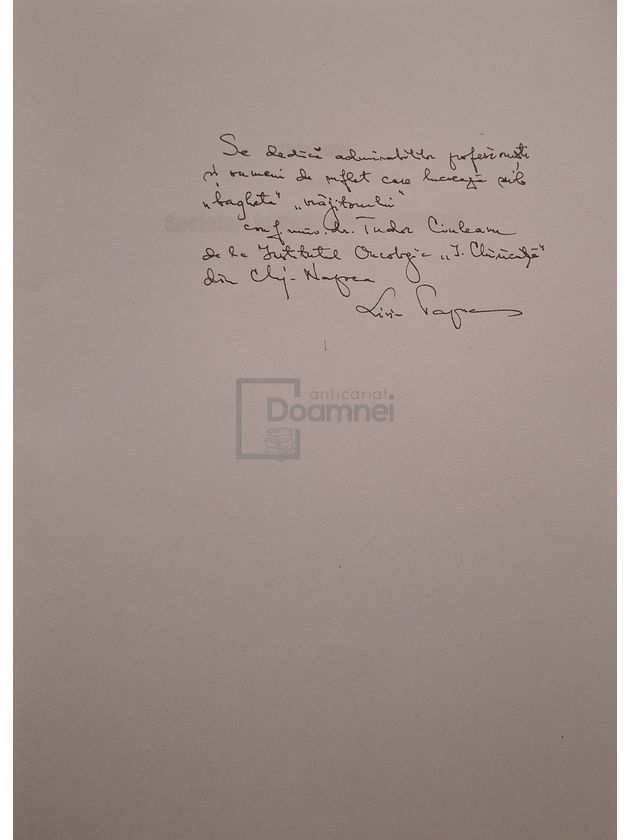 Se dedică admirabililor profesioniști
și oameni de suflet care lucrează sub
„bagheta" „vrăjitorului"
conf. univ. dr. Tudor Ciuleanu
de la Institutul Oncologic „I. Chiricuță"
din Cluj-Napoca
Liviu
anticariat
Doamnei